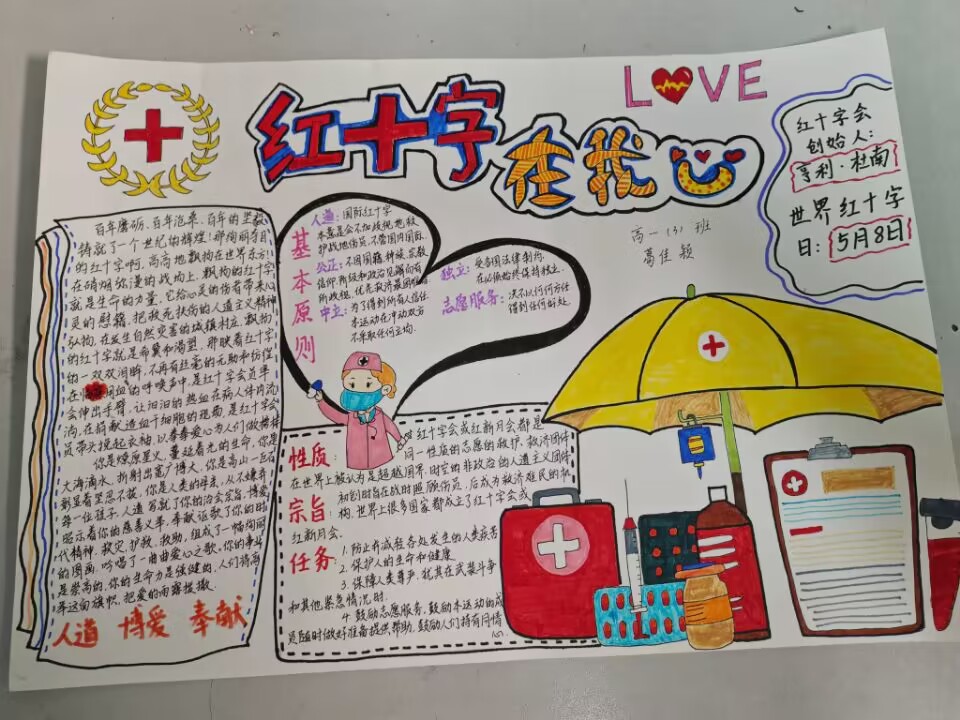 LOVE
红十字
在我心
红十字会
创始人:
亨利·杜南
世界红十字
日:5月8日
高一(3)班
葛佳颖
基本原则
人道:国际红十字
公正:不因国籍、种族、宗教
信仰、阶级和政治见解而有
所歧视,优先救济最困难的
中立:为了得到所有人信任
本运动在冲动双方
不采取任何立场。
独立:受各国法律制约,
但必须始终保持独立.
志愿服务:决不以任何方任
得到任何好处.
百年磨砺,百年沧桑,百年的坚毅
铸就了一个世纪的辉煌!那绚丽夺目
的红十字啊,高高地飘扬在世界东方!
在硝烟弥漫的战场上,飘扬的红十字
就是生命的力量,它给心灵的伤者带来心
灵的慰籍,把救死扶伤的人道主义精神
弘扬,在发生自然灾害的城镇村庄,飘扬
的红十字就是希冀和渴望.那映着红十字
的一双双泪眸,不再有丝毫的无助和彷徨
会伸出手臂,让汩汩的热血在病人体内流
淌,在捐献造血干细胞的现场,是红十字会
员带头挽起衣袖,以拳拳爱心为人们做榜样
你是燎原星火,蔓延着光的生命,你是
大海滴水,折射出宽广博大,你是高山一丘石
每一位孩子,人道写就了你的治会宗旨,博爱
昭示着你的慈善义事,奉献讴歌了你的时
代精神,救灾、护救、救助,组成了一幅绚丽
的图画,吟唱了一曲曲爱心之歌.你的事业
是崇高的,你的生命力是强健的,人们将高
举这面旗帜,把爱的雨露播撒.
人道 博爱 奉献
性质:
红十字会或红新月会都是
同一性质的志愿的救护、救济团体
在世界上被认为是超越国界、时空的非政治的人道主义团体
宗旨:
初创时旨在战时照顾伤员,后成为救济难民的机
构,世界上很多国家都成立了红十字会或
红新月会.
任务:
1.防止并减轻各处发生的人类疾苦
2.保护人的生命和健康
3.保障人类尊严,尤其在武装斗争
和其他紧急情况时.
4.鼓励志愿服务,鼓励本运动的成
员随时做好准备提供帮助,鼓励人们持有同情
心.